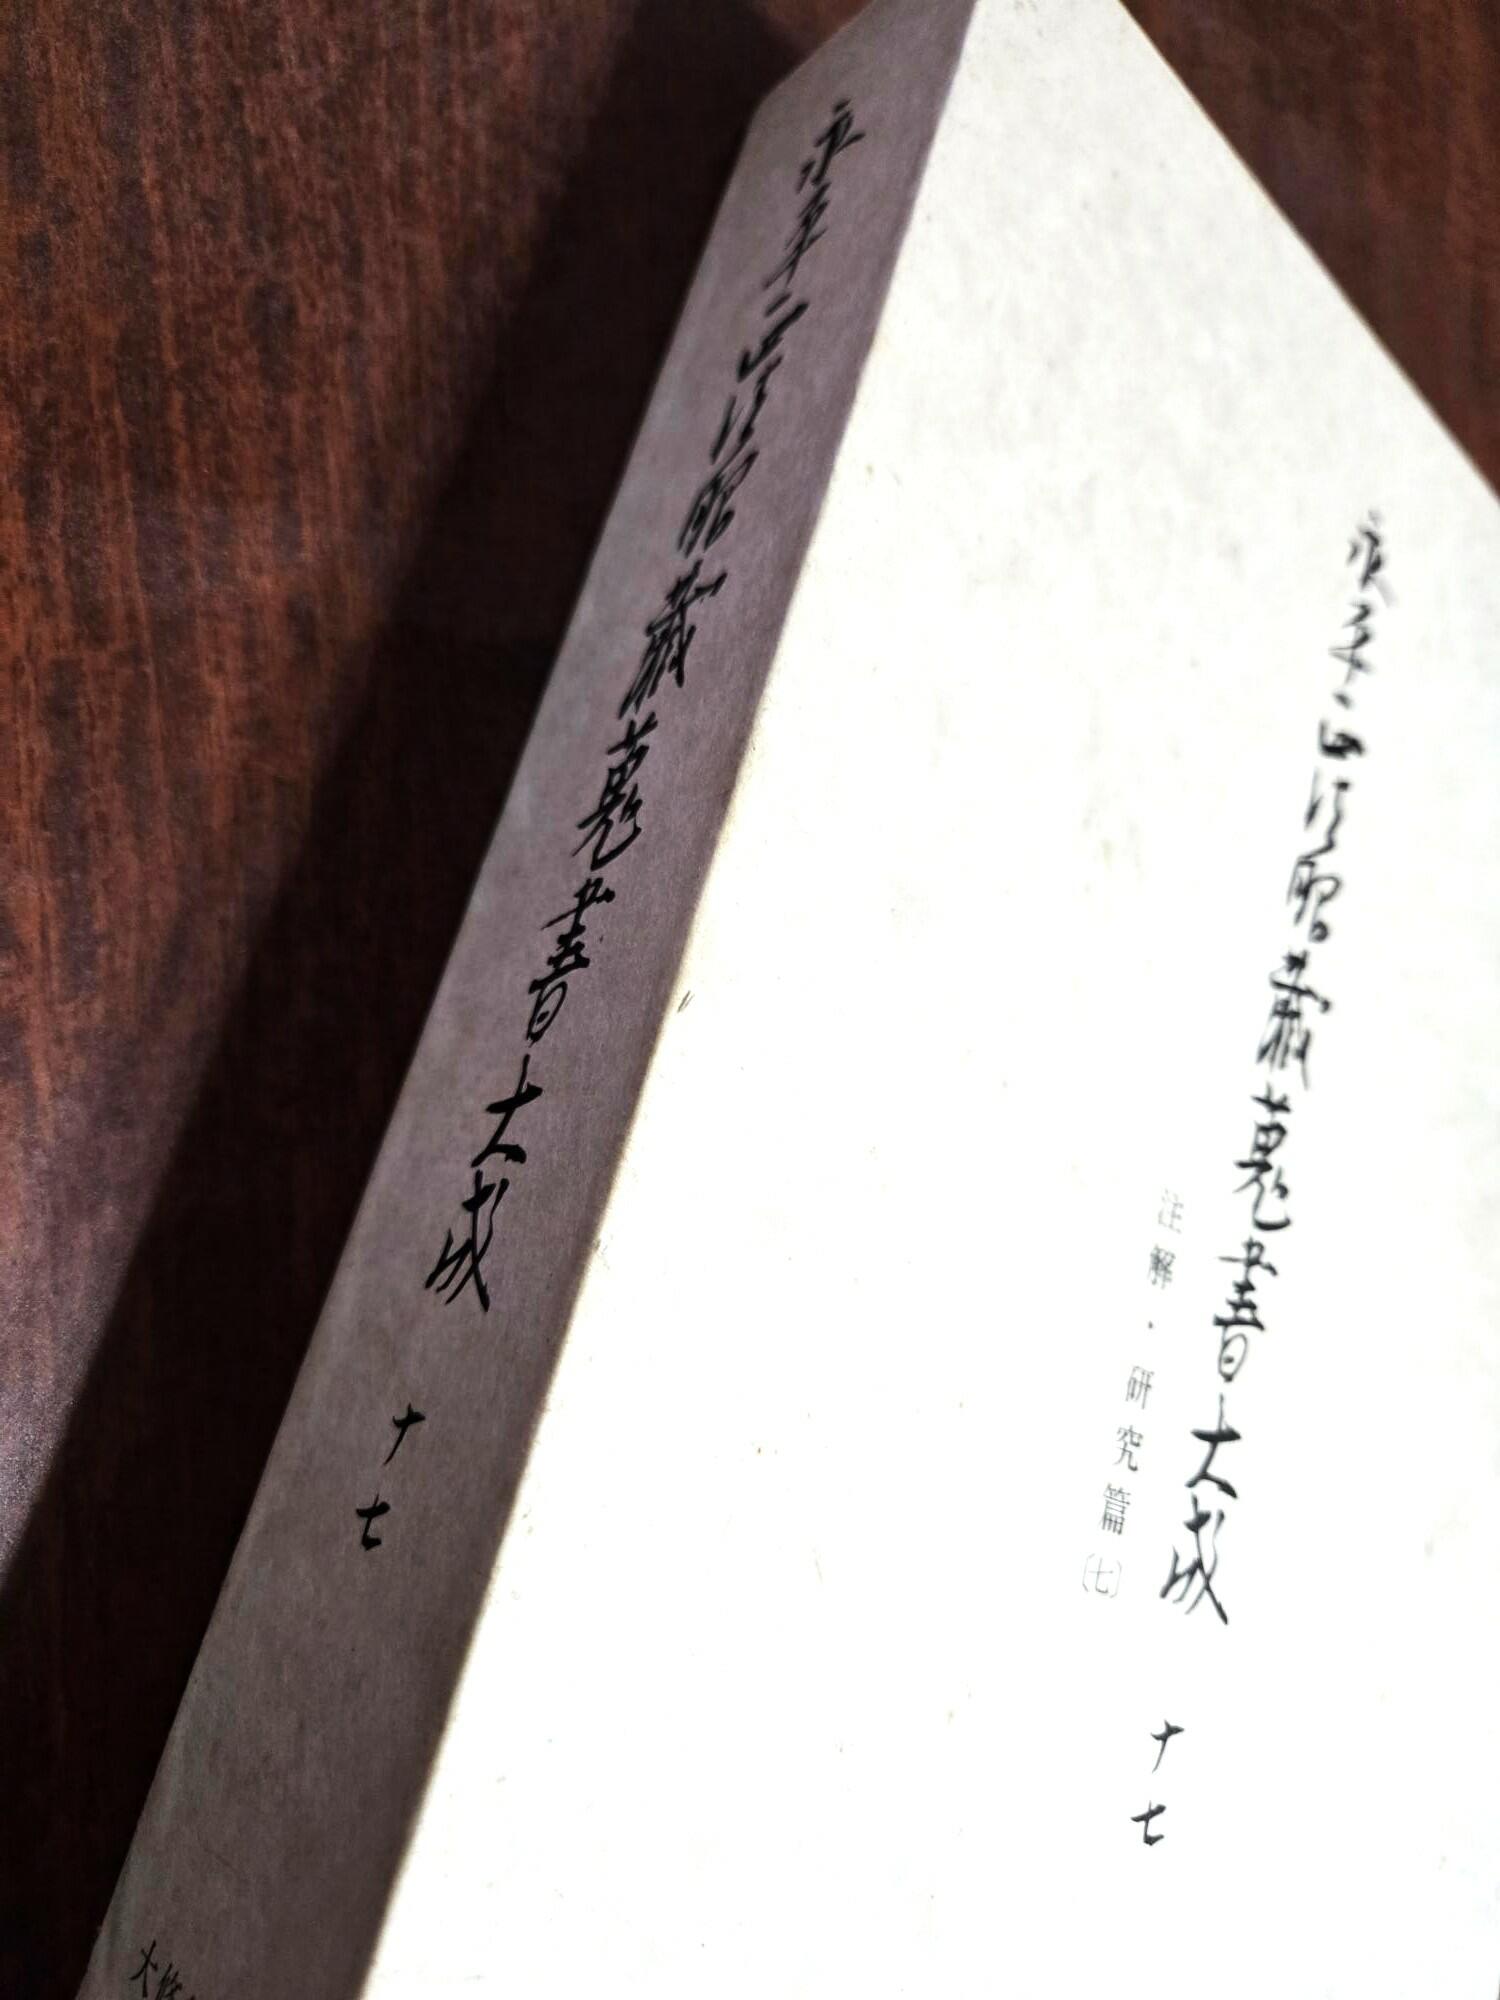 永平正法眼蔵蒐書大成
十七
大修
永平正法眼蔵蒐書大成
十七
注解・研究篇〔七〕